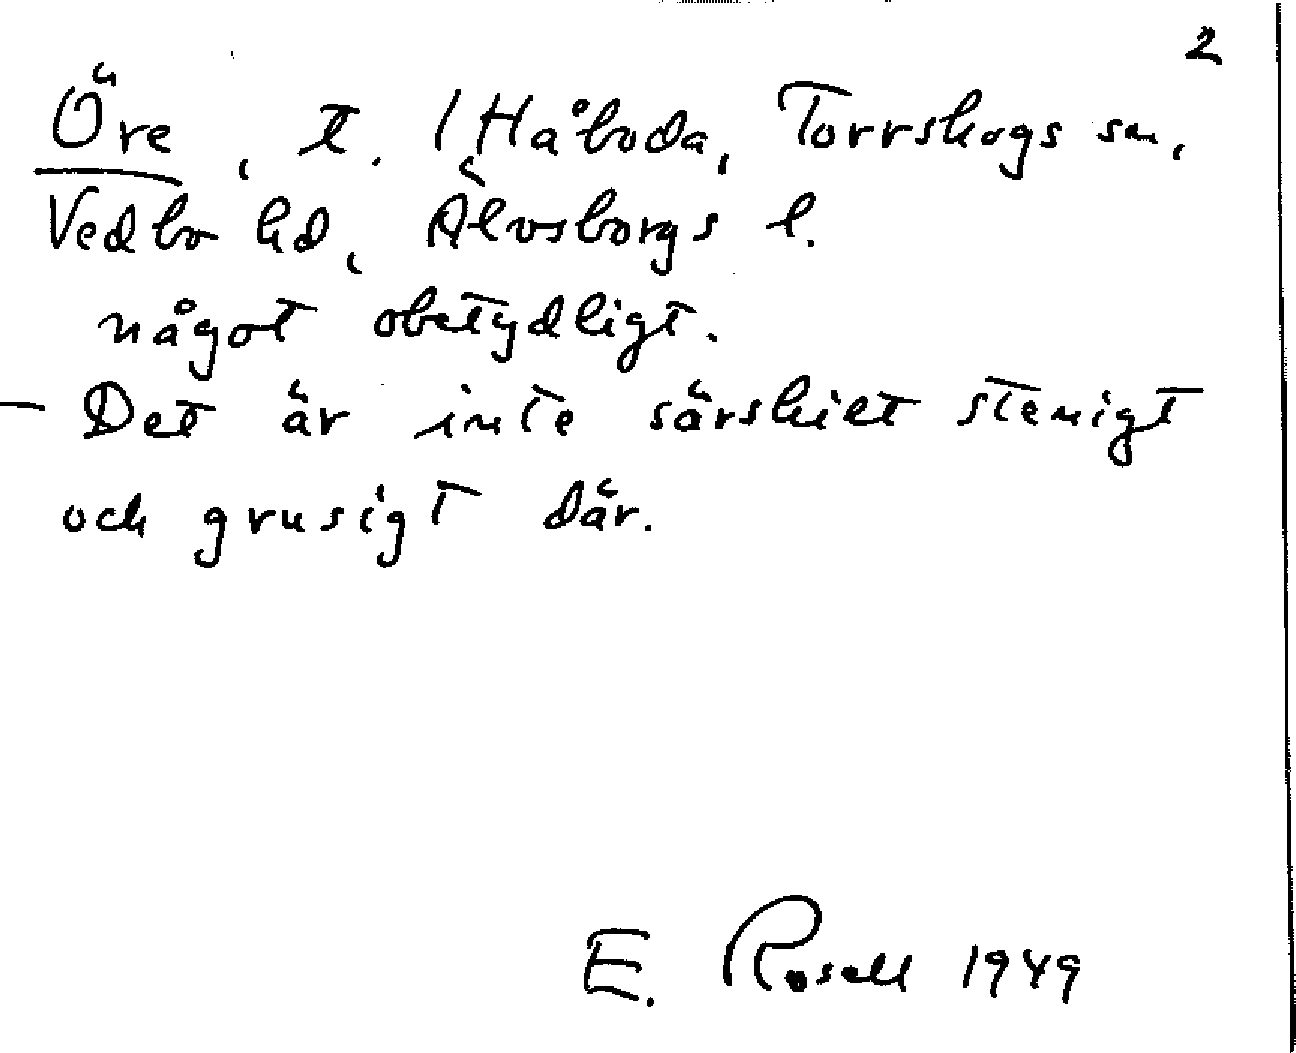 2
Öre, t. 1 Håboda, Torrskogs sn,
Vedbo hd, Älvsborgs l.
något obetydligt.
— Det är inte särskilt stenigt
och grusigt där.
E. Rosell 1949